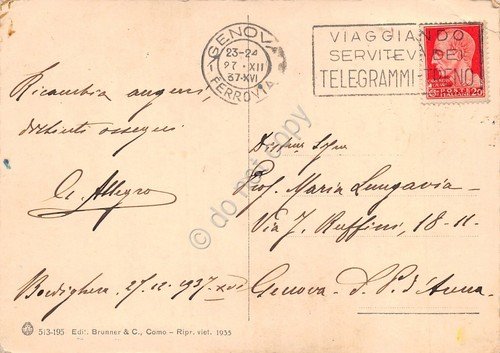 GENOVA
23-24
27·XII
37·XVI
FERROVIA
VIAGGIANDO
SERVITEVI DEI
TELEGRAMMI-TRENO
Ricambia auguri,
distinti ossequi
Allegro
Bordighera 27.12.1937-XVI
Prof. Maria Lungavia
Via J. Ruffini, 18-11
Genova - S. P. d'Arena
© do not copy
513-195 Edit. Brunner & C., Como - Ripr. viet. 1935